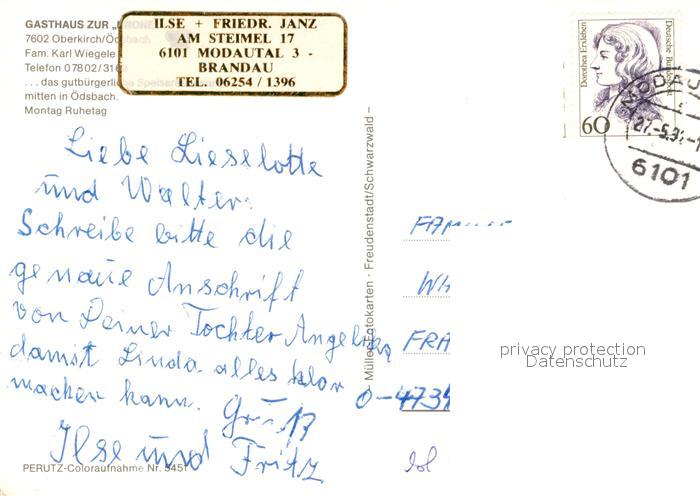 GASTHAUS ZUR
7602 Oberkirch/Ödsbach
Fam. Karl Wiegele
Telefon 07802/31
... das gutbürgerliche
mitten in Ödsbach.
Montag Ruhetag
ILSE + FRIEDR. JANZ
AM STEIMEL 17
6101 MODAUTAL 3 -
BRANDAU
TEL. 06254 / 1396
Dorothea Erxleben
Deutsche Bundespost
60
27.-5.91.-1
6101
Liebe Lieselotte
und Walter.
Schreibe bitte die
genaue Anschrift
von Deiner Tochter Angelika
damit Linda alles klar
machen kann. Gruß
Ilse und Fritz
PERUTZ-Coloraufnahme Nr. 5451
Müller Fotokarten · Freudenstadt/Schwarzwald –
FAM
WA
FRA
0-4734
privacy protection
Datenschutz